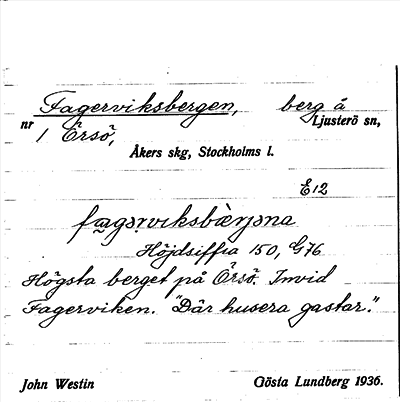 Fagerviksbergen, berg å
nr 1 Örsö, Ljusterö sn,
Åkers skg, Stockholms l.
E12
Höjdsiffra 150, G76
Högsta berget på Örsö. Invid
Fagerviken. "Där husera gastar."
John Westin Gösta Lundberg 1936.